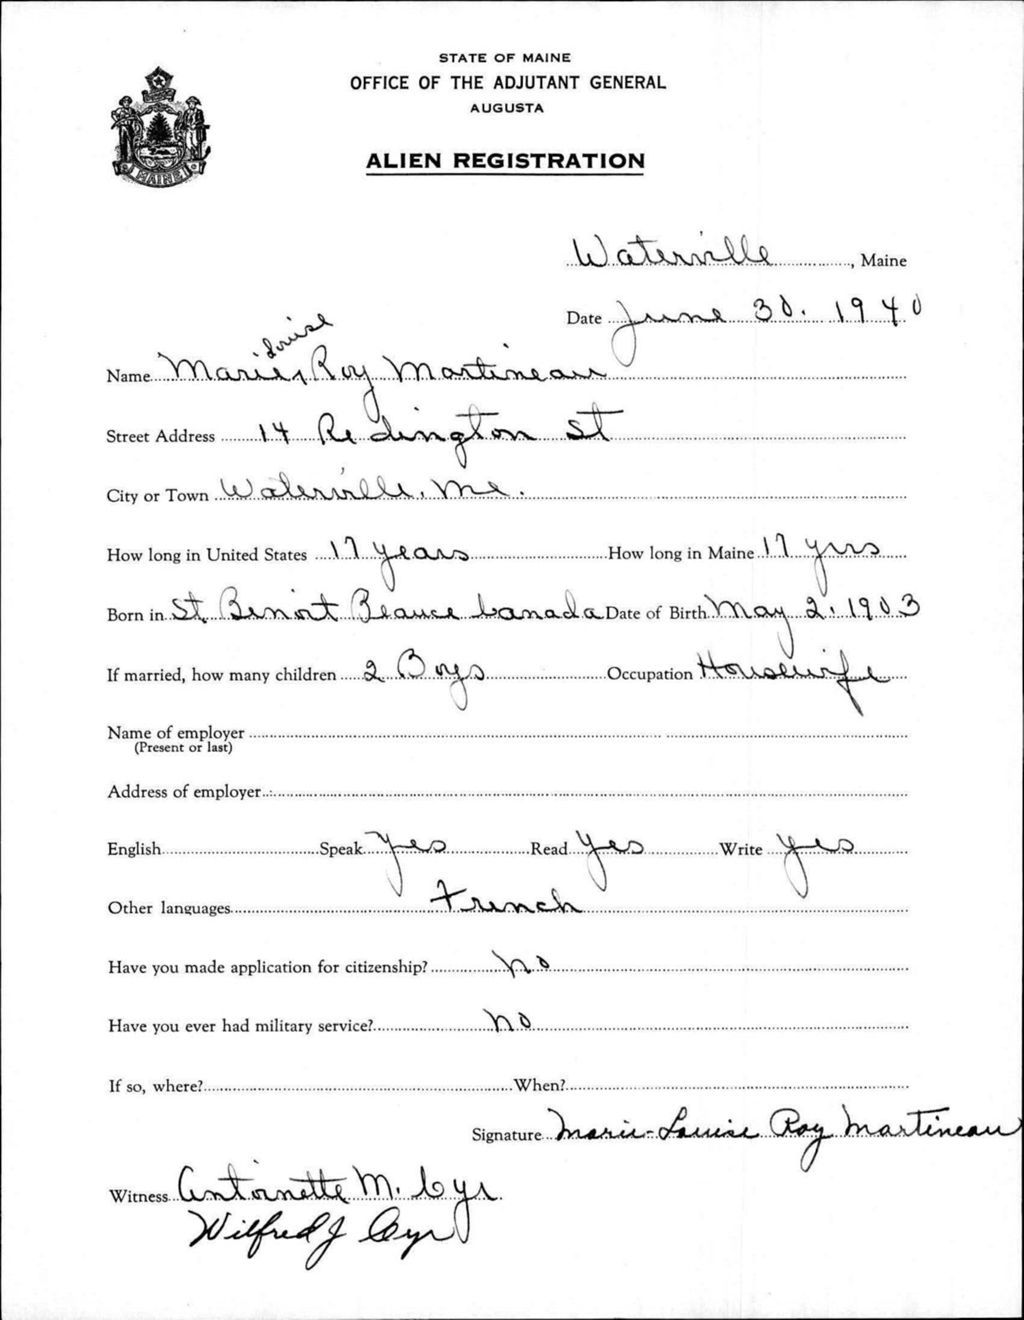 STATE OF MAINE
OFFICE OF THE ADJUTANT GENERAL
AUGUSTA
ALIEN REGISTRATION
MAINE
Waterville, Maine
Date June 30. 1940
Louise
Name Marie ^ Roy Martineau
Street Address 14 Redington St
City or Town Waterville, Me.
How long in United States 17 years How long in Maine 17 yrs
Born in St. Benoit Beauce Canada Date of Birth May 2. 1903
If married, how many children 2 Boys Occupation Housewife
Name of employer
(Present or last)
Address of employer
English Speak Yes Read Yes Write Yes
Other languages French
Have you made application for citizenship? No
Have you ever had military service? No
If so, where? When?
Signature Marie-Louise Roy Martineau
Witness Antoinette M. Cyr
Wilfred J Cyr